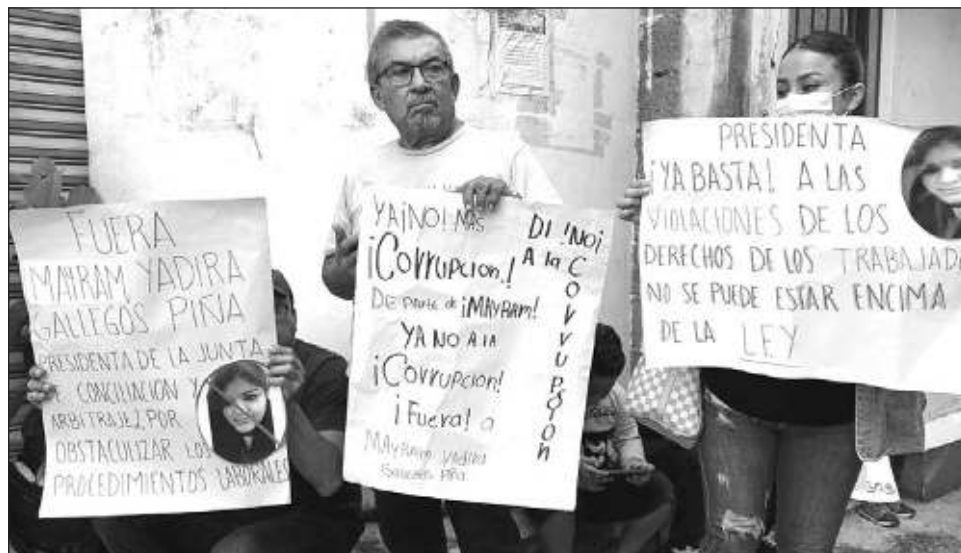 FUERA
MAYRAM YADIRA
GALLEGOS PIÑA
PRESIDENTA DE LA JUNTA
DE CONCILIACION Y
ARBITRAJE, POR
OBSTACULIZAR LOS
PROCEDIMIENTOS LABORALES
YA¡NO! MAS
¡Corrupcion!
De parte de ¡MAYRam!
YA NO A LA
¡Corrupcion!
¡Fuera! a
MAYRam Yadira
Gallegos Piña
DI !NO¡
A la
PRESIDENTA
¡YA BASTA! A LAS
VIOLACIONES DE LOS
DERECHOS DE LOS TRABAJAD
NO SE PUEDE ESTAR ENCIMA
DE LA LEY